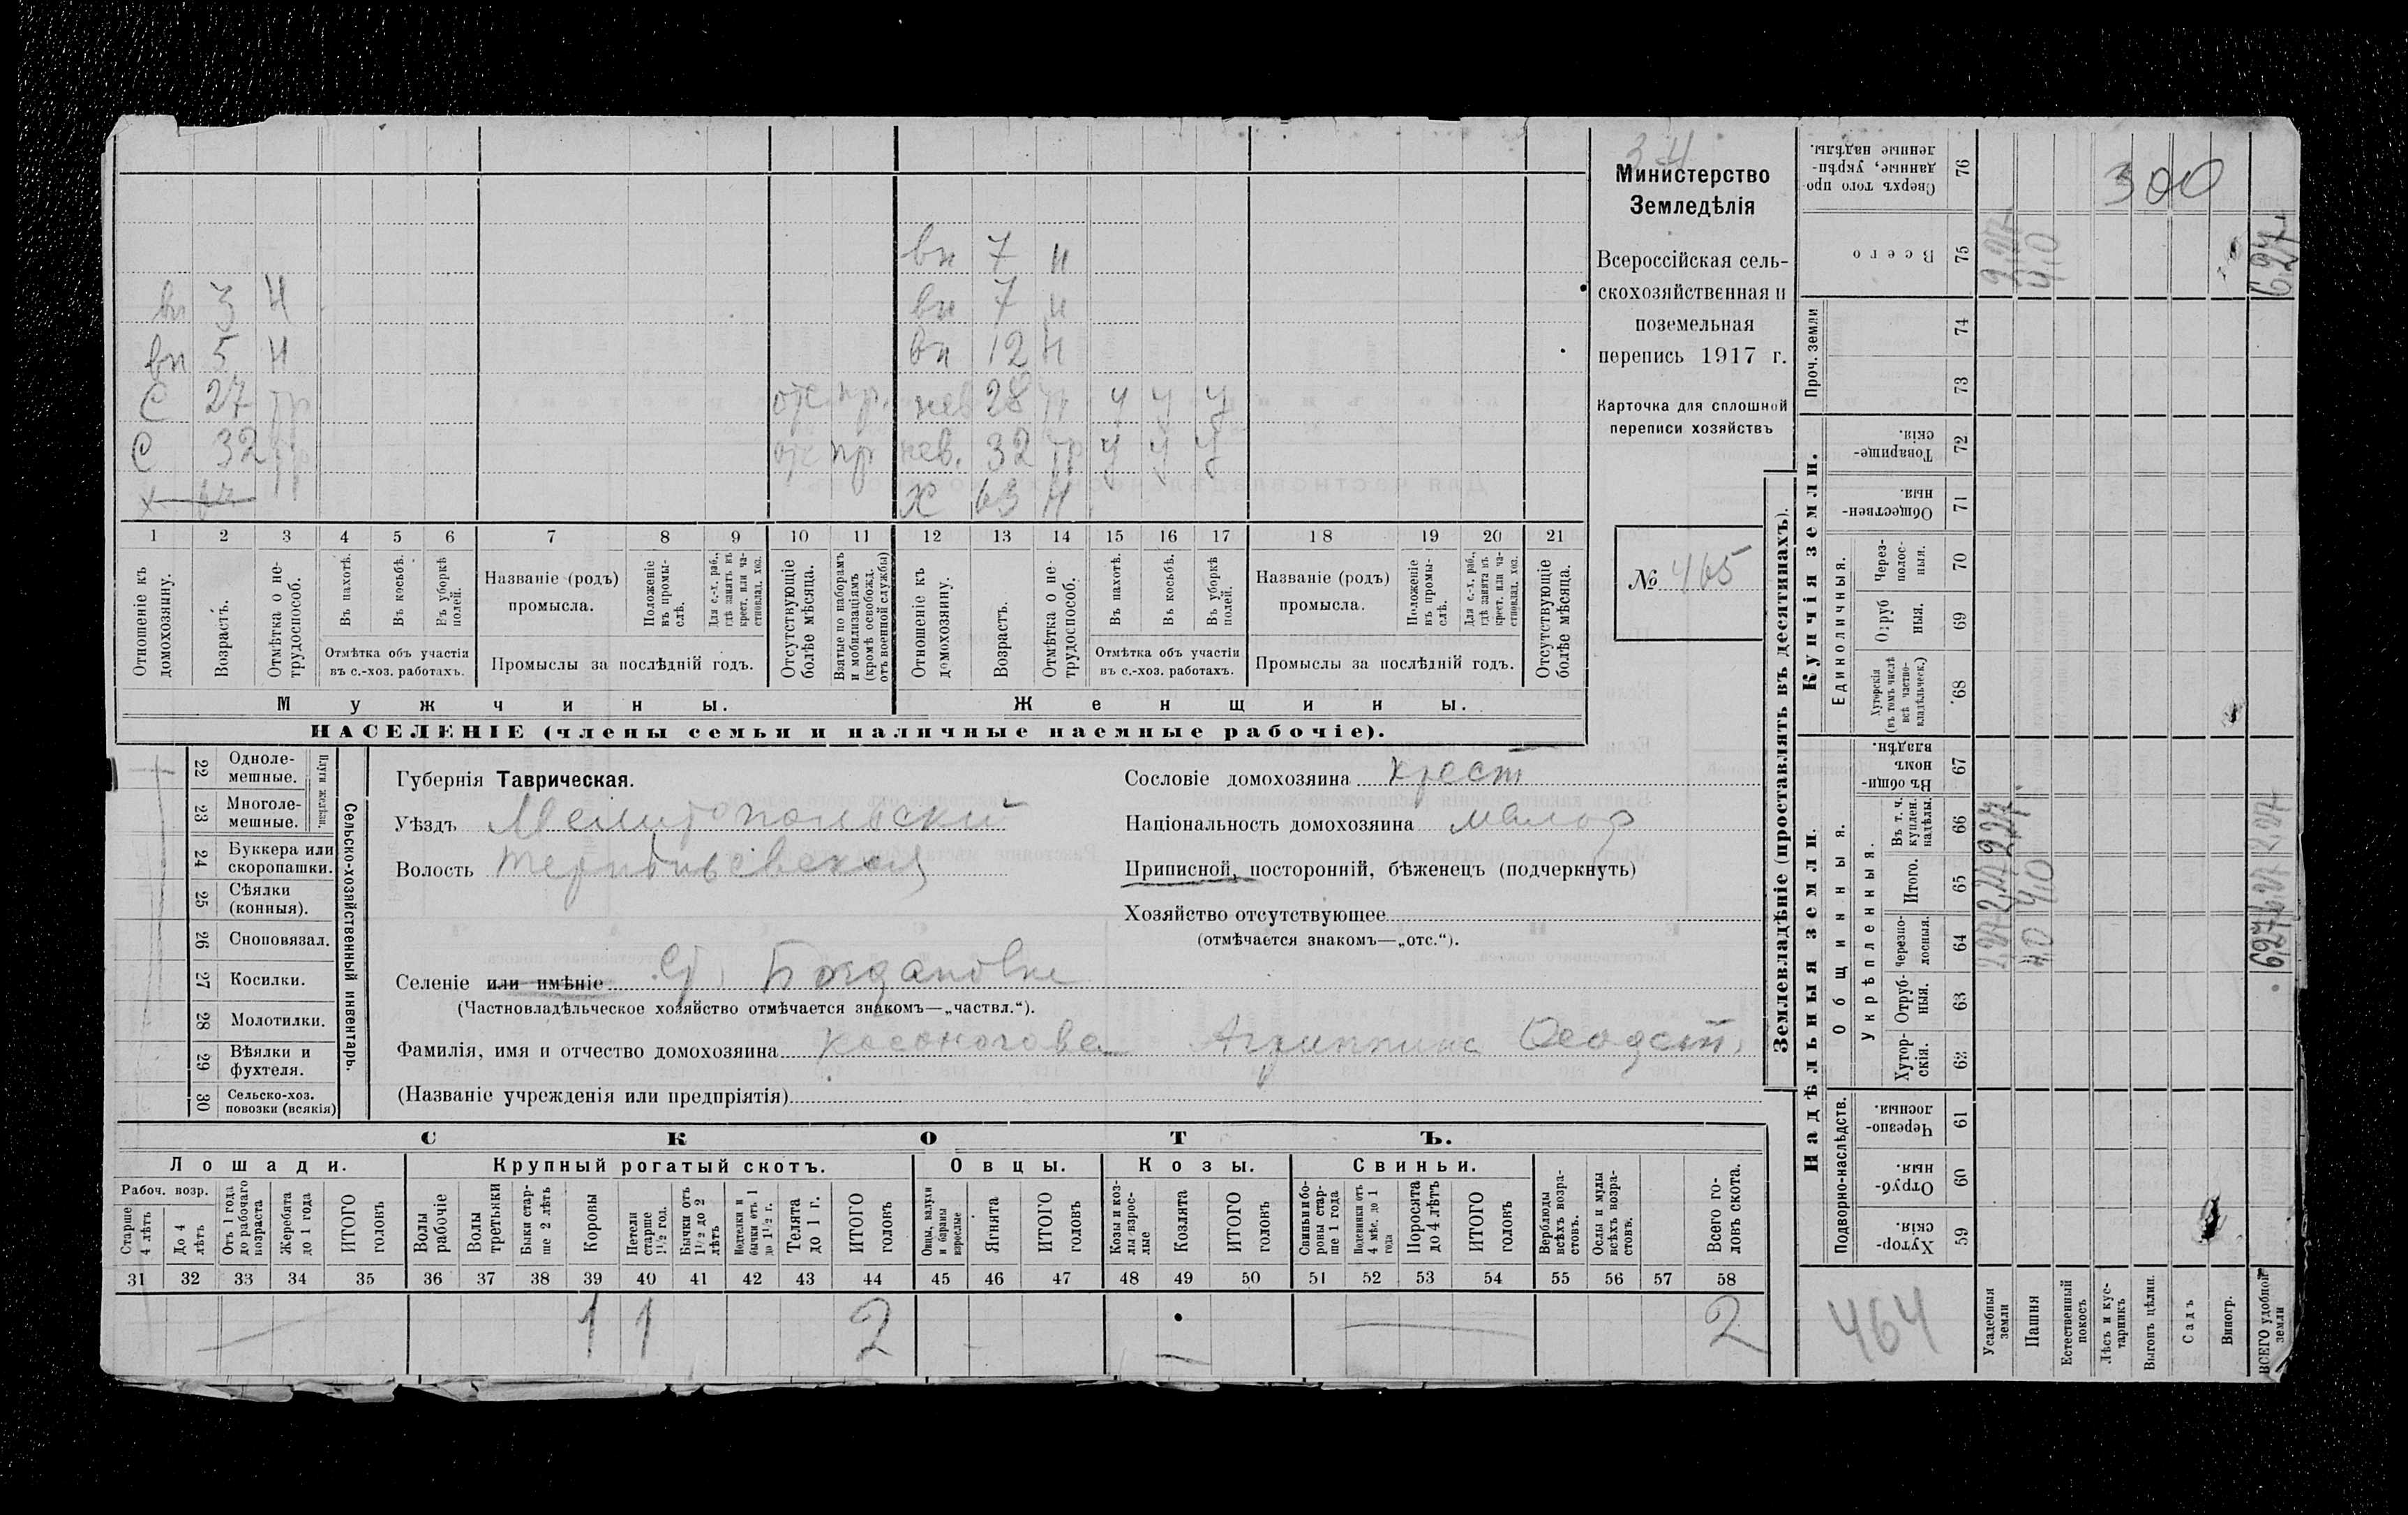 вн 7 н
вн 3 н вн 7 н
вн 5 н вн 12 н
с 27 тр отс пр. нев 28 тр у у у
с 32 тр отс пр нев. 32 тр у у у
х 64 тр х 63 н
1 2 3 4 5 6 7 8 9 10 11 12 13 14 15 16 17 18 19 20 21
Отношеніе къ домохозяину.
Возрастъ.
Отмѣтка о нетрудоспособ.
Въ пахотѣ.
Въ косьбѣ.
Въ уборкѣ полей.
Отмѣтка объ участіи въ с.-хоз. работахъ.
Названіе (родъ) промысла.
Положеніе въ промыслѣ.
Для с.-х. раб., гдѣ занятъ въ крест. или частновлад. хоз.
Промыслы за послѣдній годъ.
Отсутствующіе болѣе мѣсяца.
Взятые по наборамъ и мобилизаціямъ (кромѣ освобожд. отъ военной службы)
Отношеніе къ домохозяину.
Возрастъ.
Отмѣтка о нетрудоспособ.
Въ пахотѣ.
Въ косьбѣ.
Въ уборкѣ полей.
Отмѣтка объ участіи въ с.-хоз. работахъ.
Названіе (родъ) промысла.
Положеніе въ промыслѣ.
Для с.-х. раб., гдѣ занята въ крест. или частновлад. хоз.
Промыслы за послѣдній годъ.
Отсутствующіе болѣе мѣсяца.
Мужчины. Женщины.
НАСЕЛЕНІЕ (члены семьи и наличные наемные рабочіе).
Министерство
Земледѣлія
Всероссійская сель-
скохозяйственная и
поземельная
перепись 1917 г.
Карточка для сплошной
переписи хозяйствъ
№ 465
22 Одноле-
мешные.
23 Многоле-
мешные.
Плуги желѣзн.
24 Буккера или
скоропашки.
25 Сѣялки
(конныя).
26 Сноповязал.
27 Косилки.
28 Молотилки.
29 Вѣялки и
фухтеля.
30 Сельско-хоз.
повозки (всякія)
Сельско-хозяйственный инвентарь.
Губернія Таврическая.
Уѣздъ Мелитопольскій
Волость Терпѣньевская
Селеніе или имѣніе с. Богдановка
(Частновладѣльческое хозяйство отмѣчается знакомъ—„частвл.“).
Фамилія, имя и отчество домохозяина Косоногова Агриппина Феодот.
(Названіе учрежденія или предпріятія)
Сословіе домохозяина крест
Національность домохозяина малор
Приписной, посторонній, бѣженецъ (подчеркнуть)
Хозяйство отсутствующее
(отмѣчается знакомъ—„отс.“).
СКОТЪ.
Лошади. Крупный рогатый скотъ. Овцы. Козы. Свиньи.
Рабоч. возр.
Старше 4 лѣтъ
До 4 лѣтъ
Отъ 1 года до рабочаго возраста
Жеребята до 1 года
ИТОГО головъ
Волы рабочіе
Волы третьяки
Быки старше 2 лѣтъ
Коровы
Нетели старше 1½ год.
Бычки отъ 1½ до 2 лѣтъ
Подтелки и бычки отъ 1 до 1½ г.
Телята до 1 г.
ИТОГО головъ
Овцы, валухи и бараны взрослые
Ягнята
ИТОГО головъ
Козы и козлы взрослые
Козлята
ИТОГО головъ
Свиньи и боровы старше 1 года
Подсвинки отъ 4 мѣс. до 1 года
Поросята до 4 лѣтъ
ИТОГО головъ
Верблюды всѣхъ возрастовъ.
Ослы и мулы всѣхъ возрастовъ.
Всего головъ скота.
31 32 33 34 35 36 37 38 39 40 41 42 43 44 45 46 47 48 49 50 51 52 53 54 55 56 57 58
— 1 1 2 - — — 2
Землевладѣніе (проставлять въ десятинахъ).
Купчія земли.
Надѣльныя земли.
76 Сверхъ того проданные, укрѣпленные надѣлы.
300
75 Всего
2,27 4,0 6,27
Проч. земли
74
73
72 Товарищескія.
71 Общественныя.
Единоличныя.
70 Черезполосныя.
69 Отрубныя.
68 Хуторскія (въ томъ числѣ всѣ частновладѣльческ.)
Общинныя.
67 Въ общинномъ владѣн.
Укрѣпленныя.
66 Въ т. ч. куплен. надѣлы.
2,27
65 Итого.
2,27 4,0 6,27
64 Черезполосныя.
2,27 4,0 6,27
63 Отрубныя.
62 Хуторскія.
Подворно-наслѣдств.
61 Черезполосныя.
60 Отрубныя.
59 Хуторскія.
464
Усадебныя земли
Пашня
Естественный покосъ
Лѣсъ и кустарникъ
Выгонъ цѣлин.
Садъ
Виногр.
ВСЕГО удобной земли